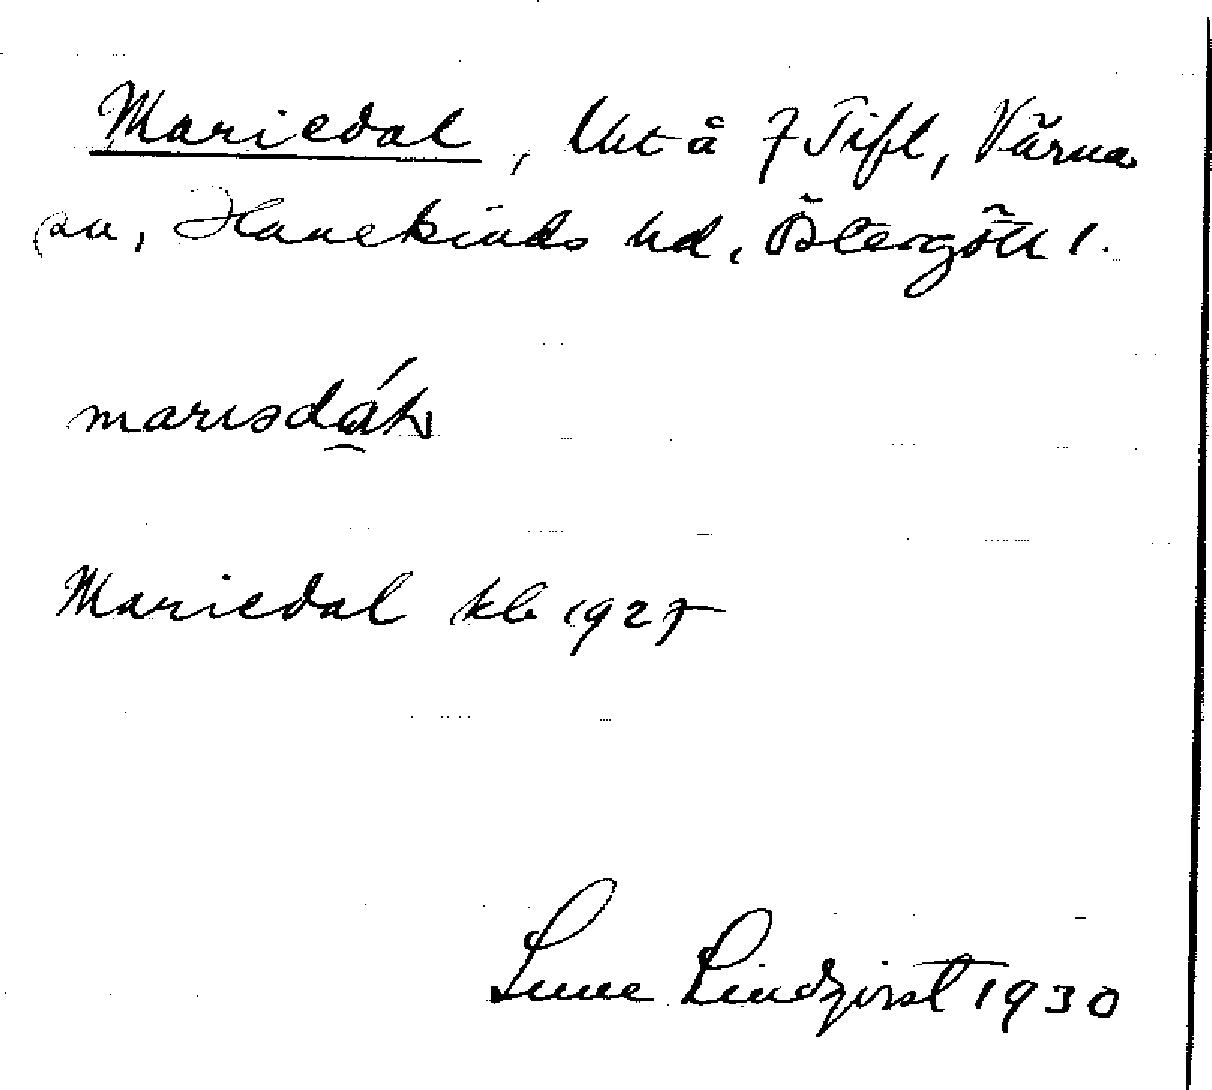 Mariedal, lht å 7 Tifl, Värna
sn, Hanekinds hd, Östergötl l.
marɩsdáḷ
Mariedal kb 1927
Sune Lindqvist 1930